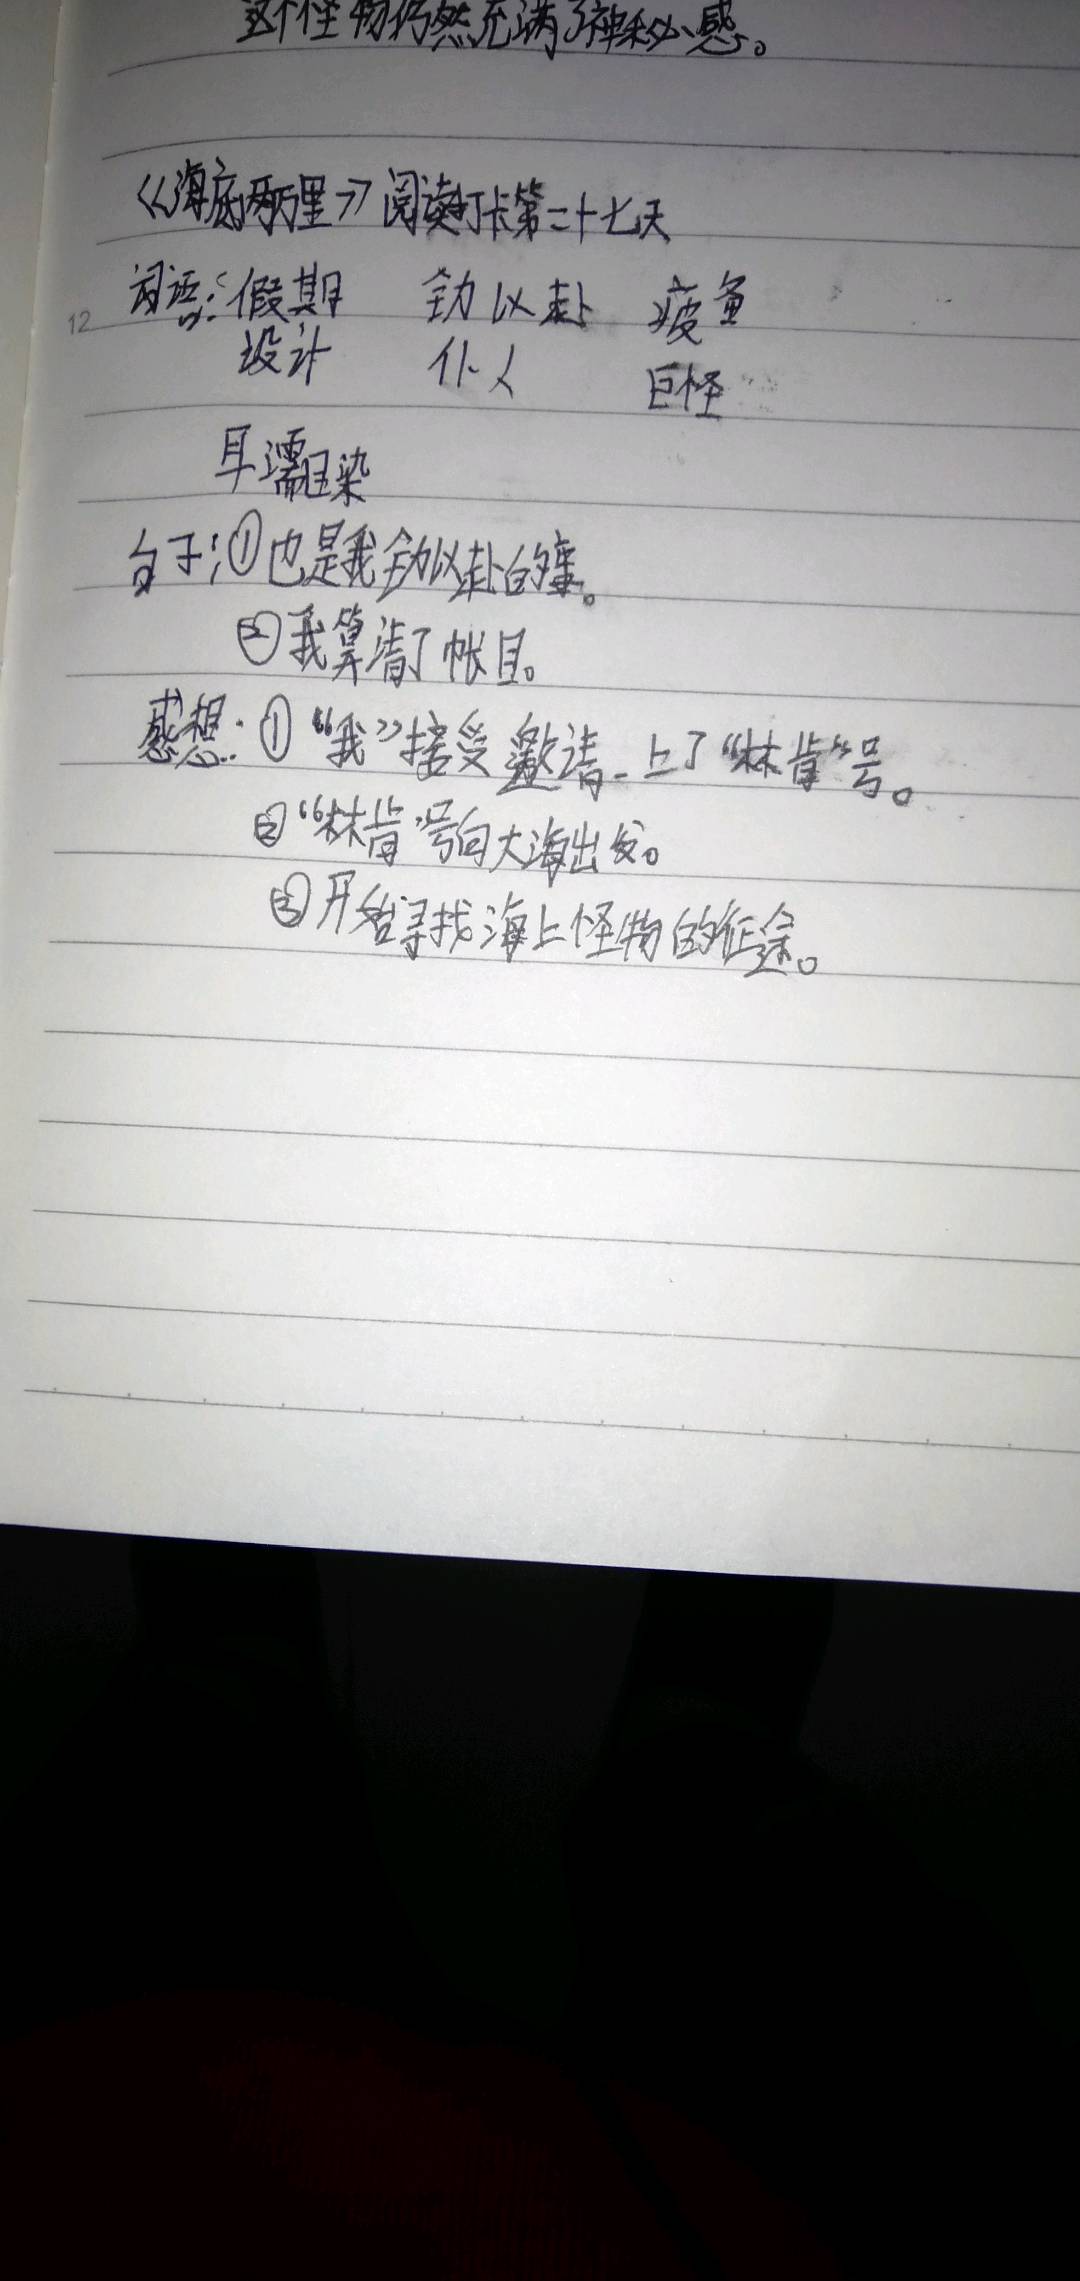 这个怪物仍然充满了神秘感。
《海底两万里》阅读打卡第二十七天
12
词语:假期 全力以赴 疲惫
设计 仆人 巨怪
耳濡目染
句子:①也是我全力以赴的事。
②我算清了帐目。
感想:①“我”接受邀请,上了“林肯”号。
②“林肯”号向大海出发。
③开始寻找海上怪物的征途。